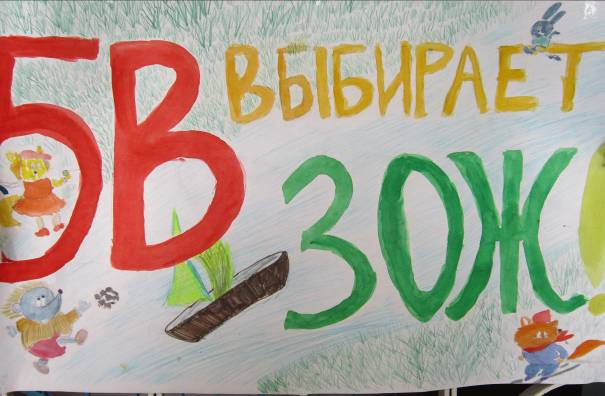 БВ ВЫБИРАЕТ
ЗОЖ!